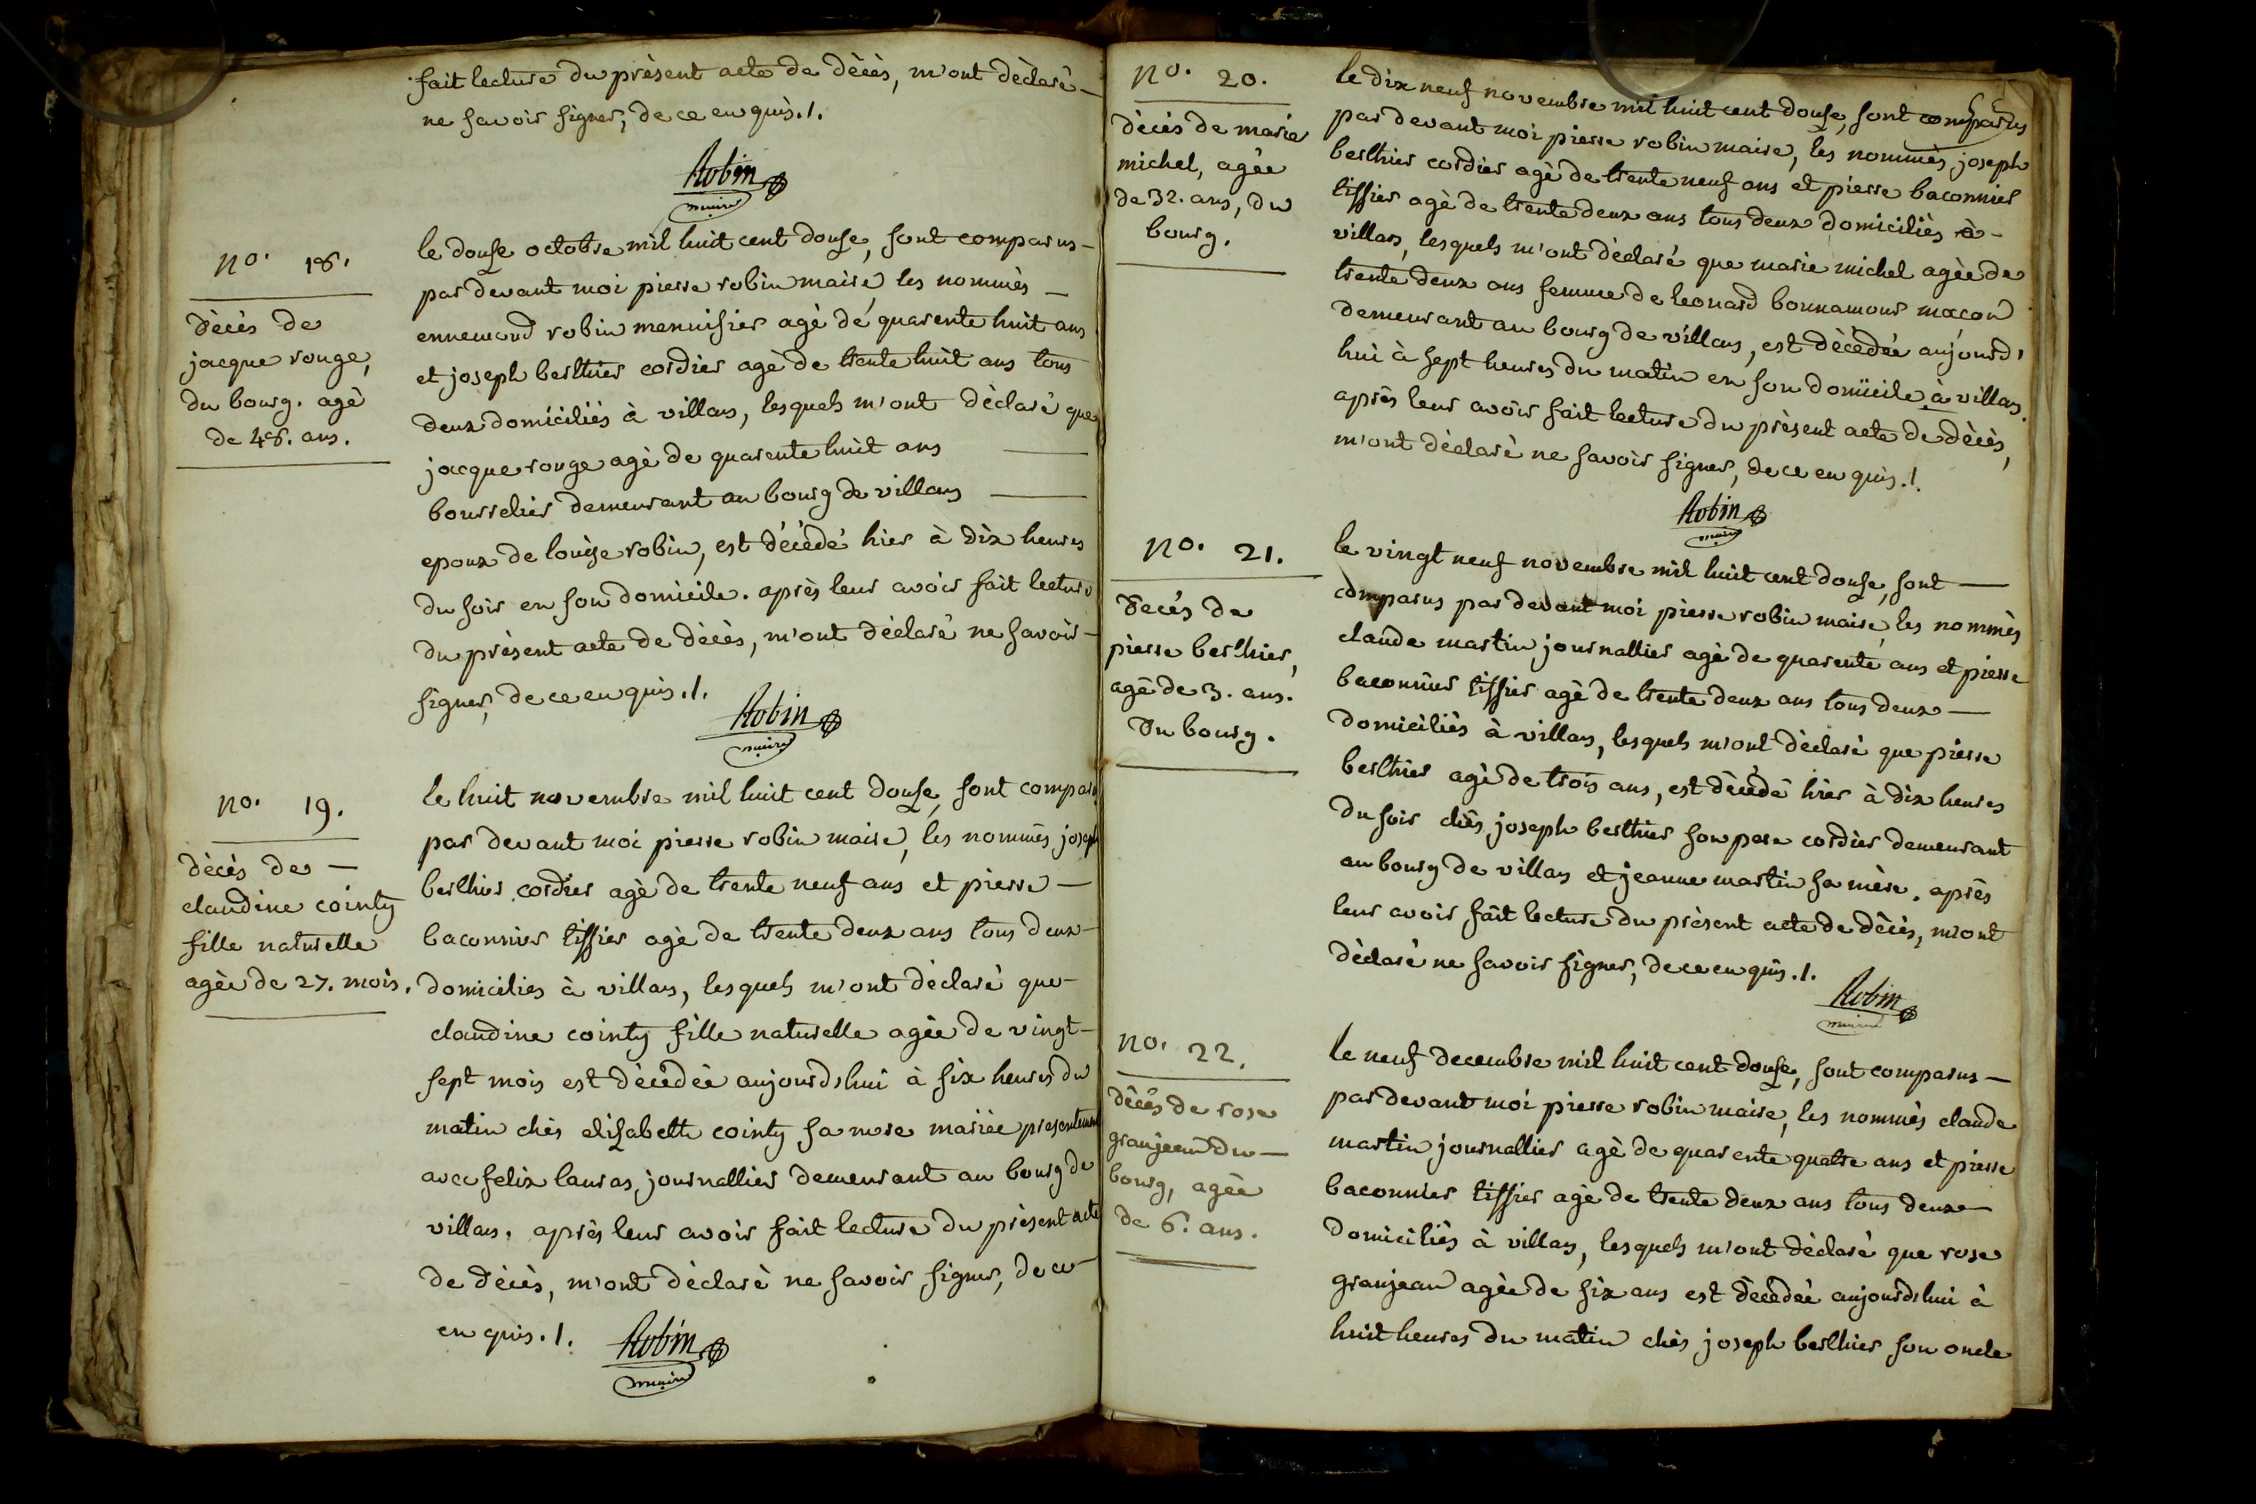 fait lecture du prèsent acte de dècès, m'ont dèclarè
ne savoir signer, de ce enquis ./.
Robin
maire
no. 18.
dècès de
jacque rouge,
du bourg. agè
de 48. ans.
le douse octobre mil huit cent douse, sont comparus
par devant moi pierre robin maire, les nommès
ennemond robin menuisier agè de quarente huit ans
et joseph berthier cordier agè de trente huit ans tous
deux domiciliès à villars, lesquels m'ont dèclarè que
jacque rouge agè de quarente huit ans
bourrelier demeurant au bourg de villars
epoux de louise robin, est dècèdè hier à dix heures
du soir en son domicile. après leur avoir fait lecture
du prèsent acte de dècès, m'ont dèclarè ne savoir
signer, de ce enquis ./.
Robin
maire
no. 19.
dècès de
claudine cointy
fille naturelle
agèe de 27. mois.
le huit novembre mil huit cent douse, sont comparus
par devant moi pierre robin maire, les nommès joseph
berthier cordier agè de trente neuf ans et pierre
baconnier tissier agè de trente deux ans tous deux
domicilies à villars, lesquels m'ont dèclarè que
claudine cointy fille naturelle agèe de vingt
sept mois est dècèdèe aujourd'hui à six heures du
matin chès elisabeth cointy sa mere mariée presentement
avec felix lauras journallier demeurant au bourg de
villars. après leur avoir fait lecture du prèsent acte
de dècès, m'ont dèclarè ne savoir signer, de ce
enquis ./.
Robin
maire
no. 20.
dècès de marie
michel, agèe
de 32. ans, du
bourg.
le dix neuf novembre mil huit cent douse, sont comparus
par devant moi pierre robin maire, les nommès joseph
berthier cordier agè de trente neuf ans et pierre baconnier
tissier agè de trente deux ans tous deux domiciliès à
villars, lesquels m'ont dèclarè que marie michel agèe de
trente deux ans femme de leonard bonnamour macon
demeurant au bourg de villars, est dècèdèe aujourd'
hui à sept heures du matin en son domicile à villars.
après leur avoir fait lecture du prèsent acte de dècès,
m'ont dèclarè ne savoir signer, de ce enquis ./.
Robin
maire
no. 21.
decès de
pierre berthier,
agè de 3. ans.
du bourg.
le vingt neuf novembre mil huit cent douse, sont
comparus par devant moi pierre robin maire, les nommès
claude martin journallier agè de quarente ans et pierre
baconnier tissier agè de trente deux ans tous deux
domiciliès à villars, lesquels m'ont dèclarè que pierre
berthier agè de trois ans, est dècèdè hier à dix heures
du soir chès joseph berthier son pere cordier demeurant
au bourg de villars et jeanne martin sa mère. après
leur avoir fait lecture du prèsent acte de dècès, m'ont
dèclarè ne savoir signer, de ce enquis ./.
Robin
maire
no. 22.
dècès de rose
granjean du
bourg, agèe
de 6. ans.
le neuf decembre mil huit cent douse, sont comparus
par devant moi pierre robin maire, les nommès claude
martin journallier agè de quarente quatre ans et pierre
baconnier tissier agè de trente deux ans tous deux
domiciliès à villars, lesquels m'ont dèclarè que rose
granjean agèe de six ans est dècèdèe aujourd'hui à
huit heures du matin chès joseph berthier son oncle